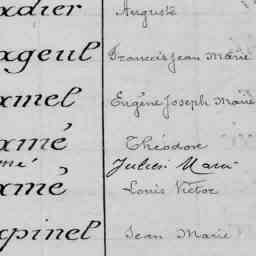 xdier Auguste
ageul Francois Jean Marie
xmel Eugène Joseph Marie
xmé Théodore
mé Julien Marie
xmé Louis Victor
xpinel Jean Marie